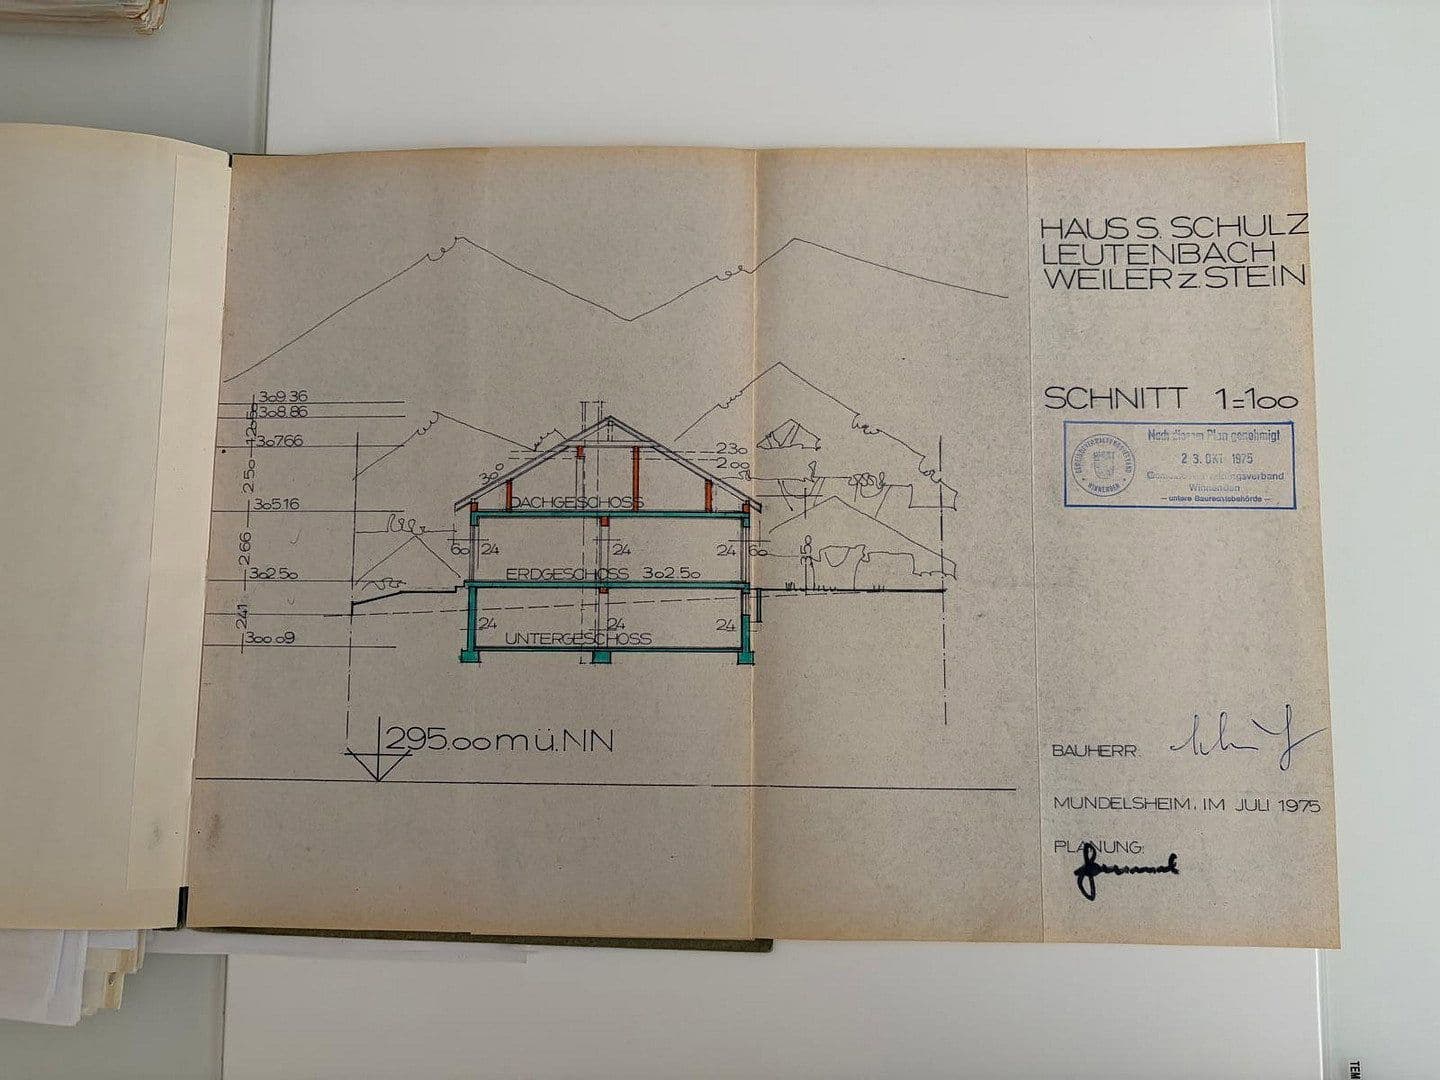 HAUS S. SCHULZ
LEUTENBACH
WEILER z. STEIN
SCHNITT 1=100
Nach diesem Plan genehmigt
23. OKT. 1975
Winnenden
– untere Baurechtsbehörde –
309.36
308.86
307.66
2.50
305.16
2.66
302.50
2.41
300.09
30°
230
2.00
DACHGESCHOSS
60 24 24 24 60
35°
ERDGESCHOSS 302.50
24 24 24
UNTERGESCHOSS
295.00 m ü. NN
BAUHERR:
MUNDELSHEIM, IM JULI 1975
PLANUNG:
TEM